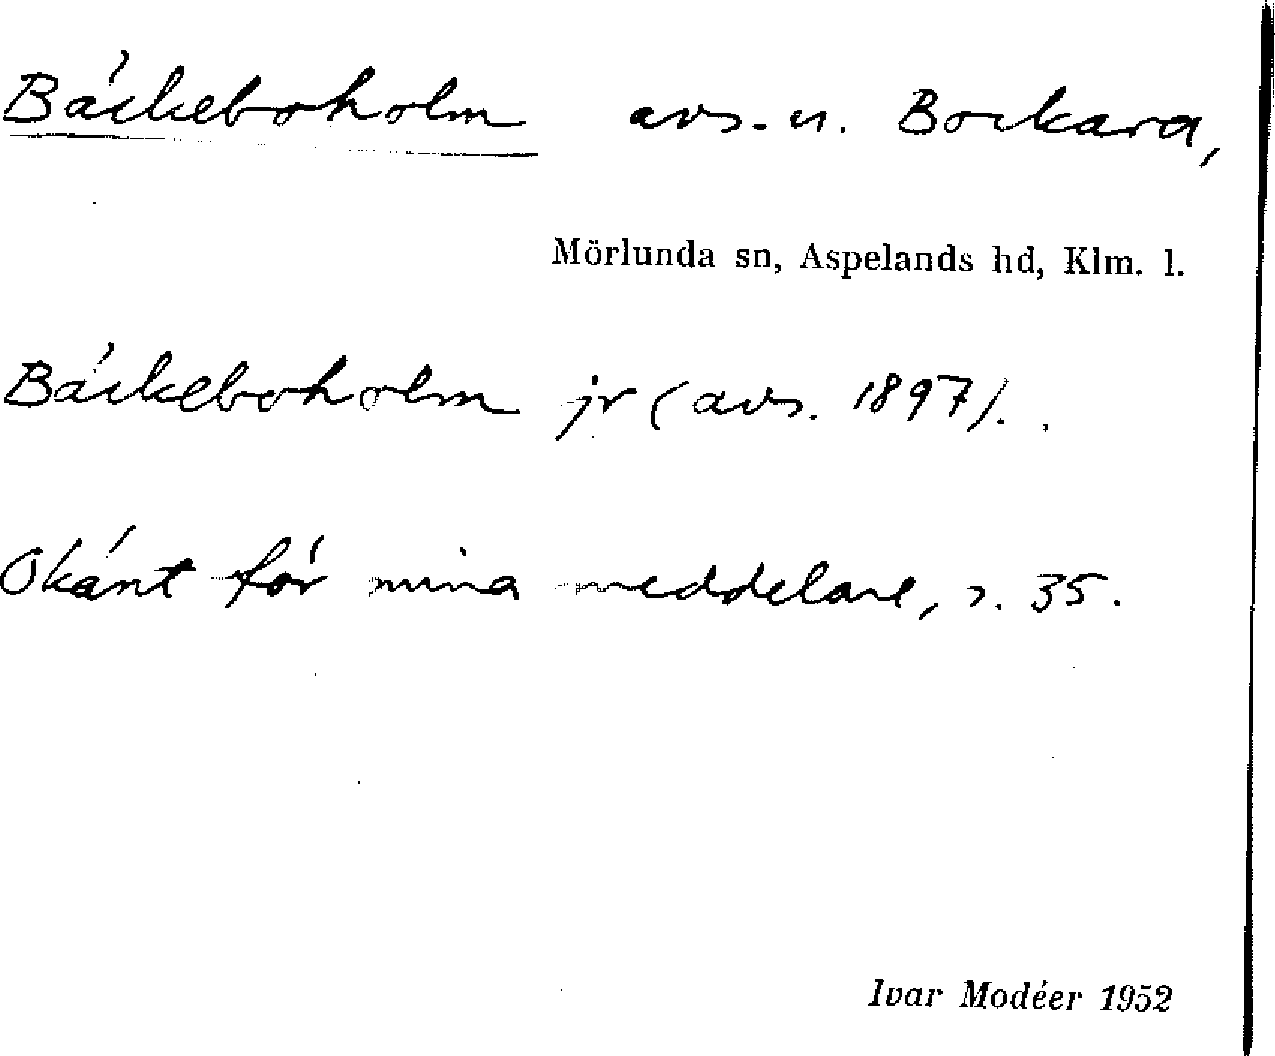 Bäckeboholm avs. u. Bockara,
Mörlunda sn, Aspelands hd, Klm. l.
Bäckeboholm jr (avs. 1897).
Okänt för mina meddelare, s. 35.
Ivar Modéer 1952